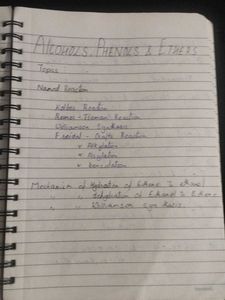 ALCOHOLS, PHENOLS & ETHERS
Topics
Named Reaction
Kolbes Reaction
Reimer-Tiemann Reaction
Williamson Synthesis
Friedal-Crafts Reaction
Alkylation
Acylation
Mechanism of Hydration of Ethene to ethanol
" " Dehydration of Ethanol to Ethene
" " Williamson syn